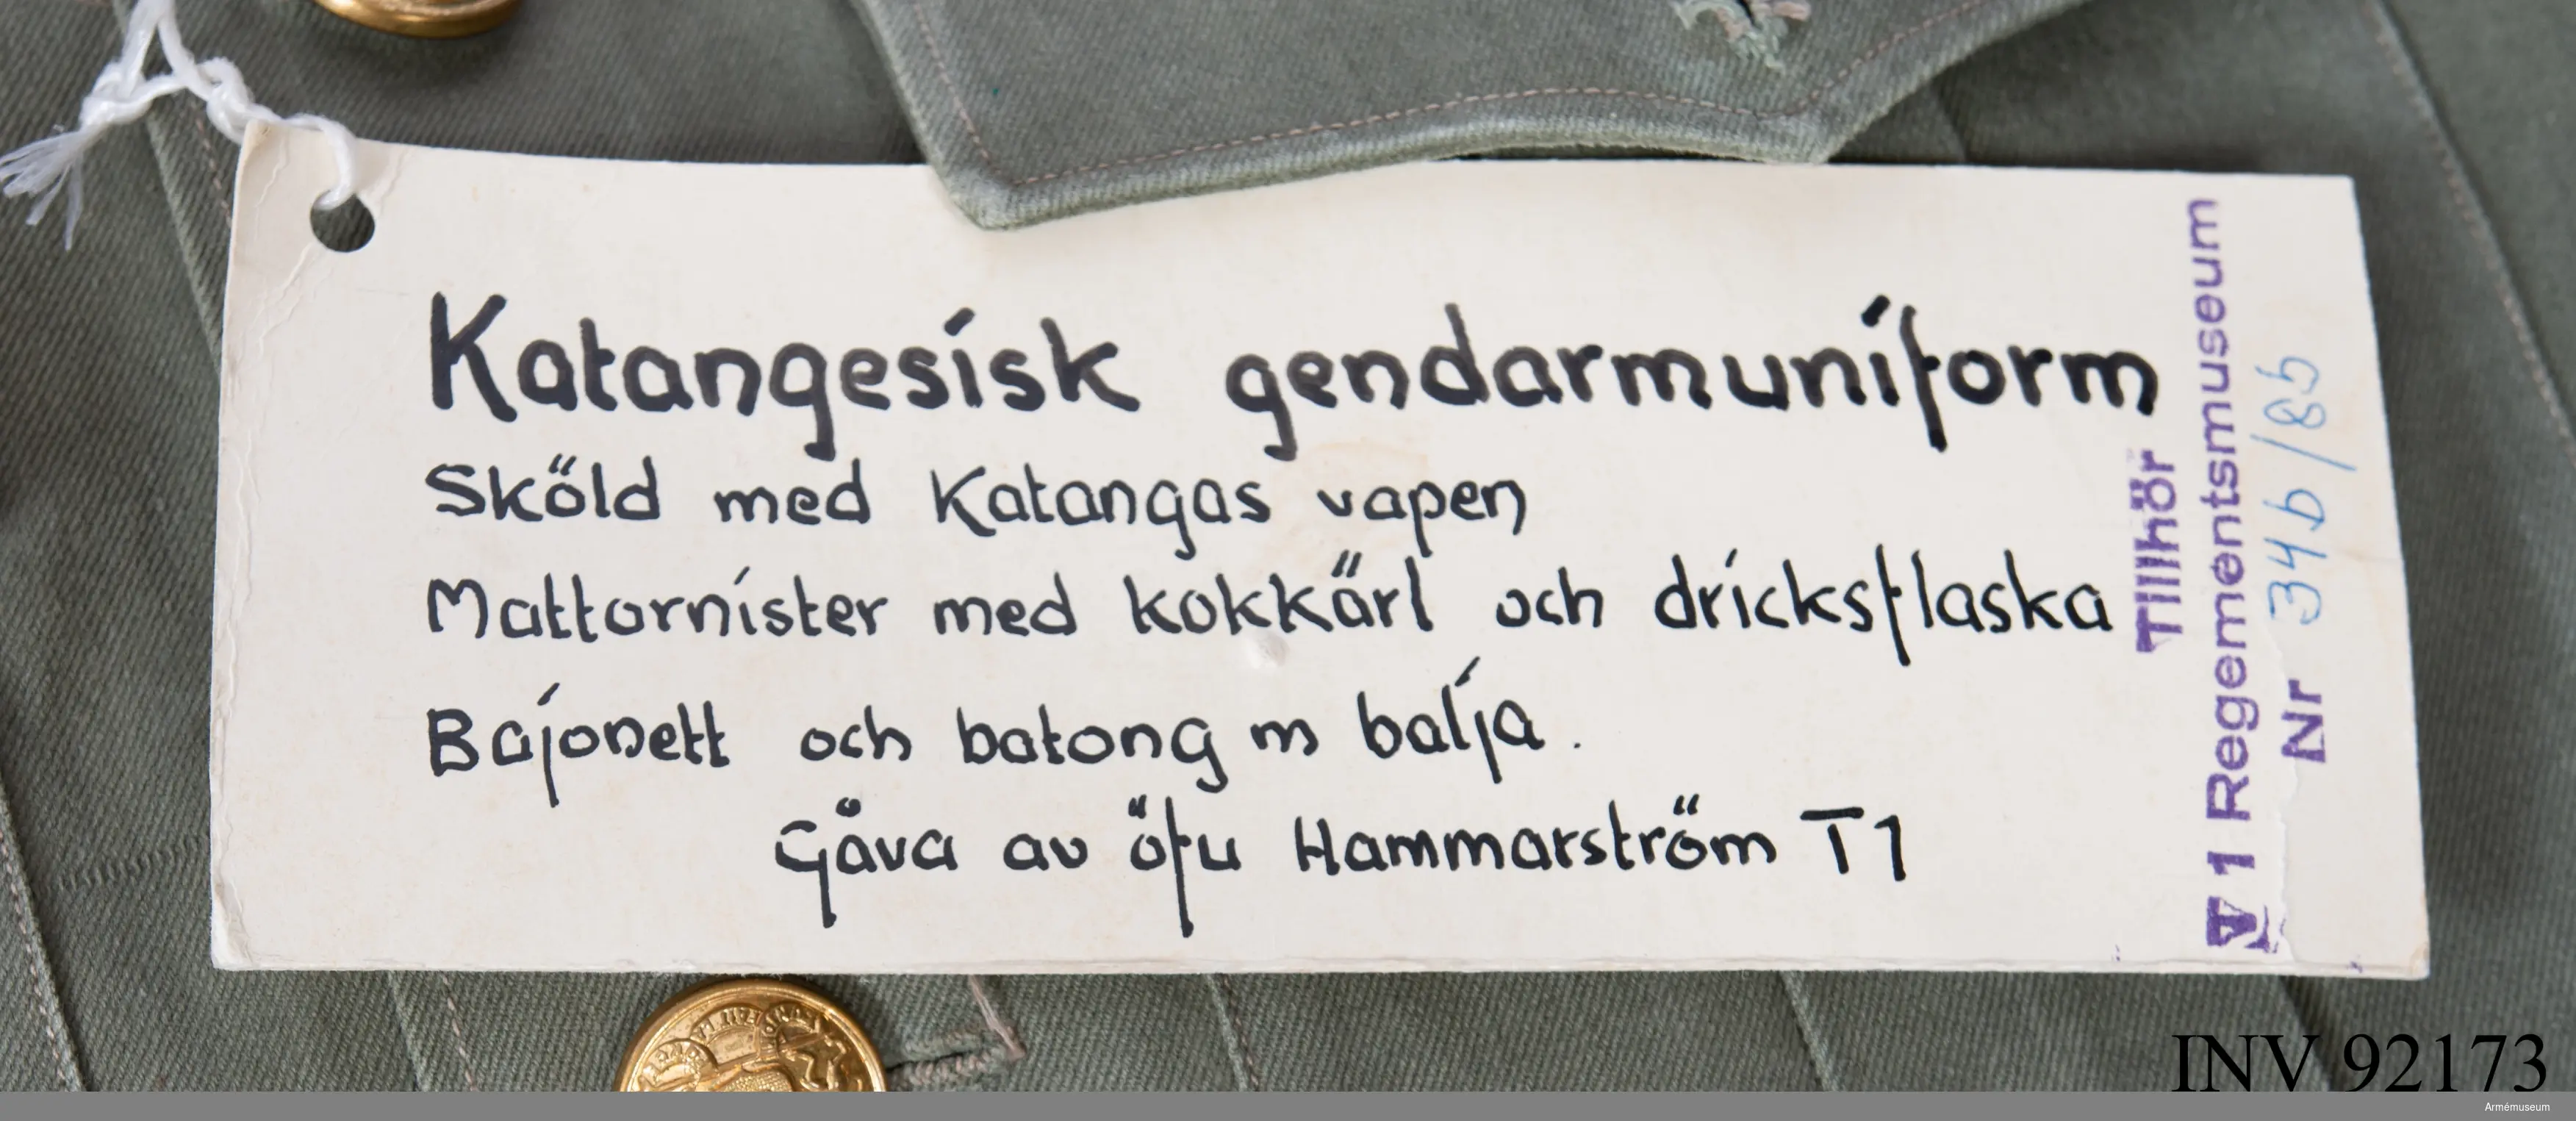 Katangesisk gendarmuniform
Sköld med Katangas vapen
Mattornister med kokkärl och dricksflaska
Bajonett och batong m balja.
Gåva av öfu Hammarström T1
Tillhör
V 1 Regementsmuseum
Nr 34b/85
INV 92173
Armémuseum